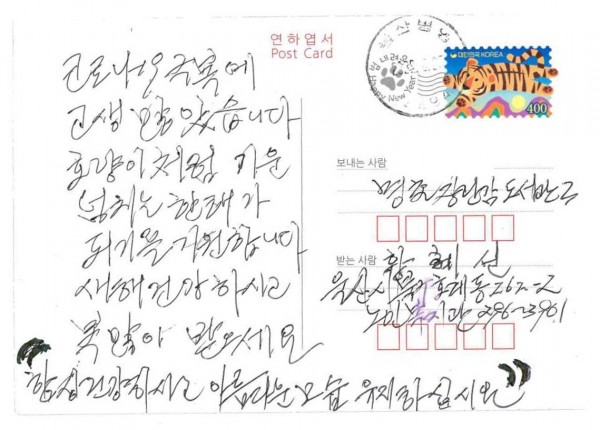 연하엽서
Post Card
대한민국 KOREA
400
New Year
코로나로 극복에
고생 많았습니다
호랑이처럼 기운
넘치는 한해가
되기를 기원합니다
새해 건강하시고
복 많이 받으세요
"항상 건강하시고 아름다운 모습 유지하십시요"
보내는 사람
도서반
받는 사람
황 혜 선
울산시
노인복지관 296-3901